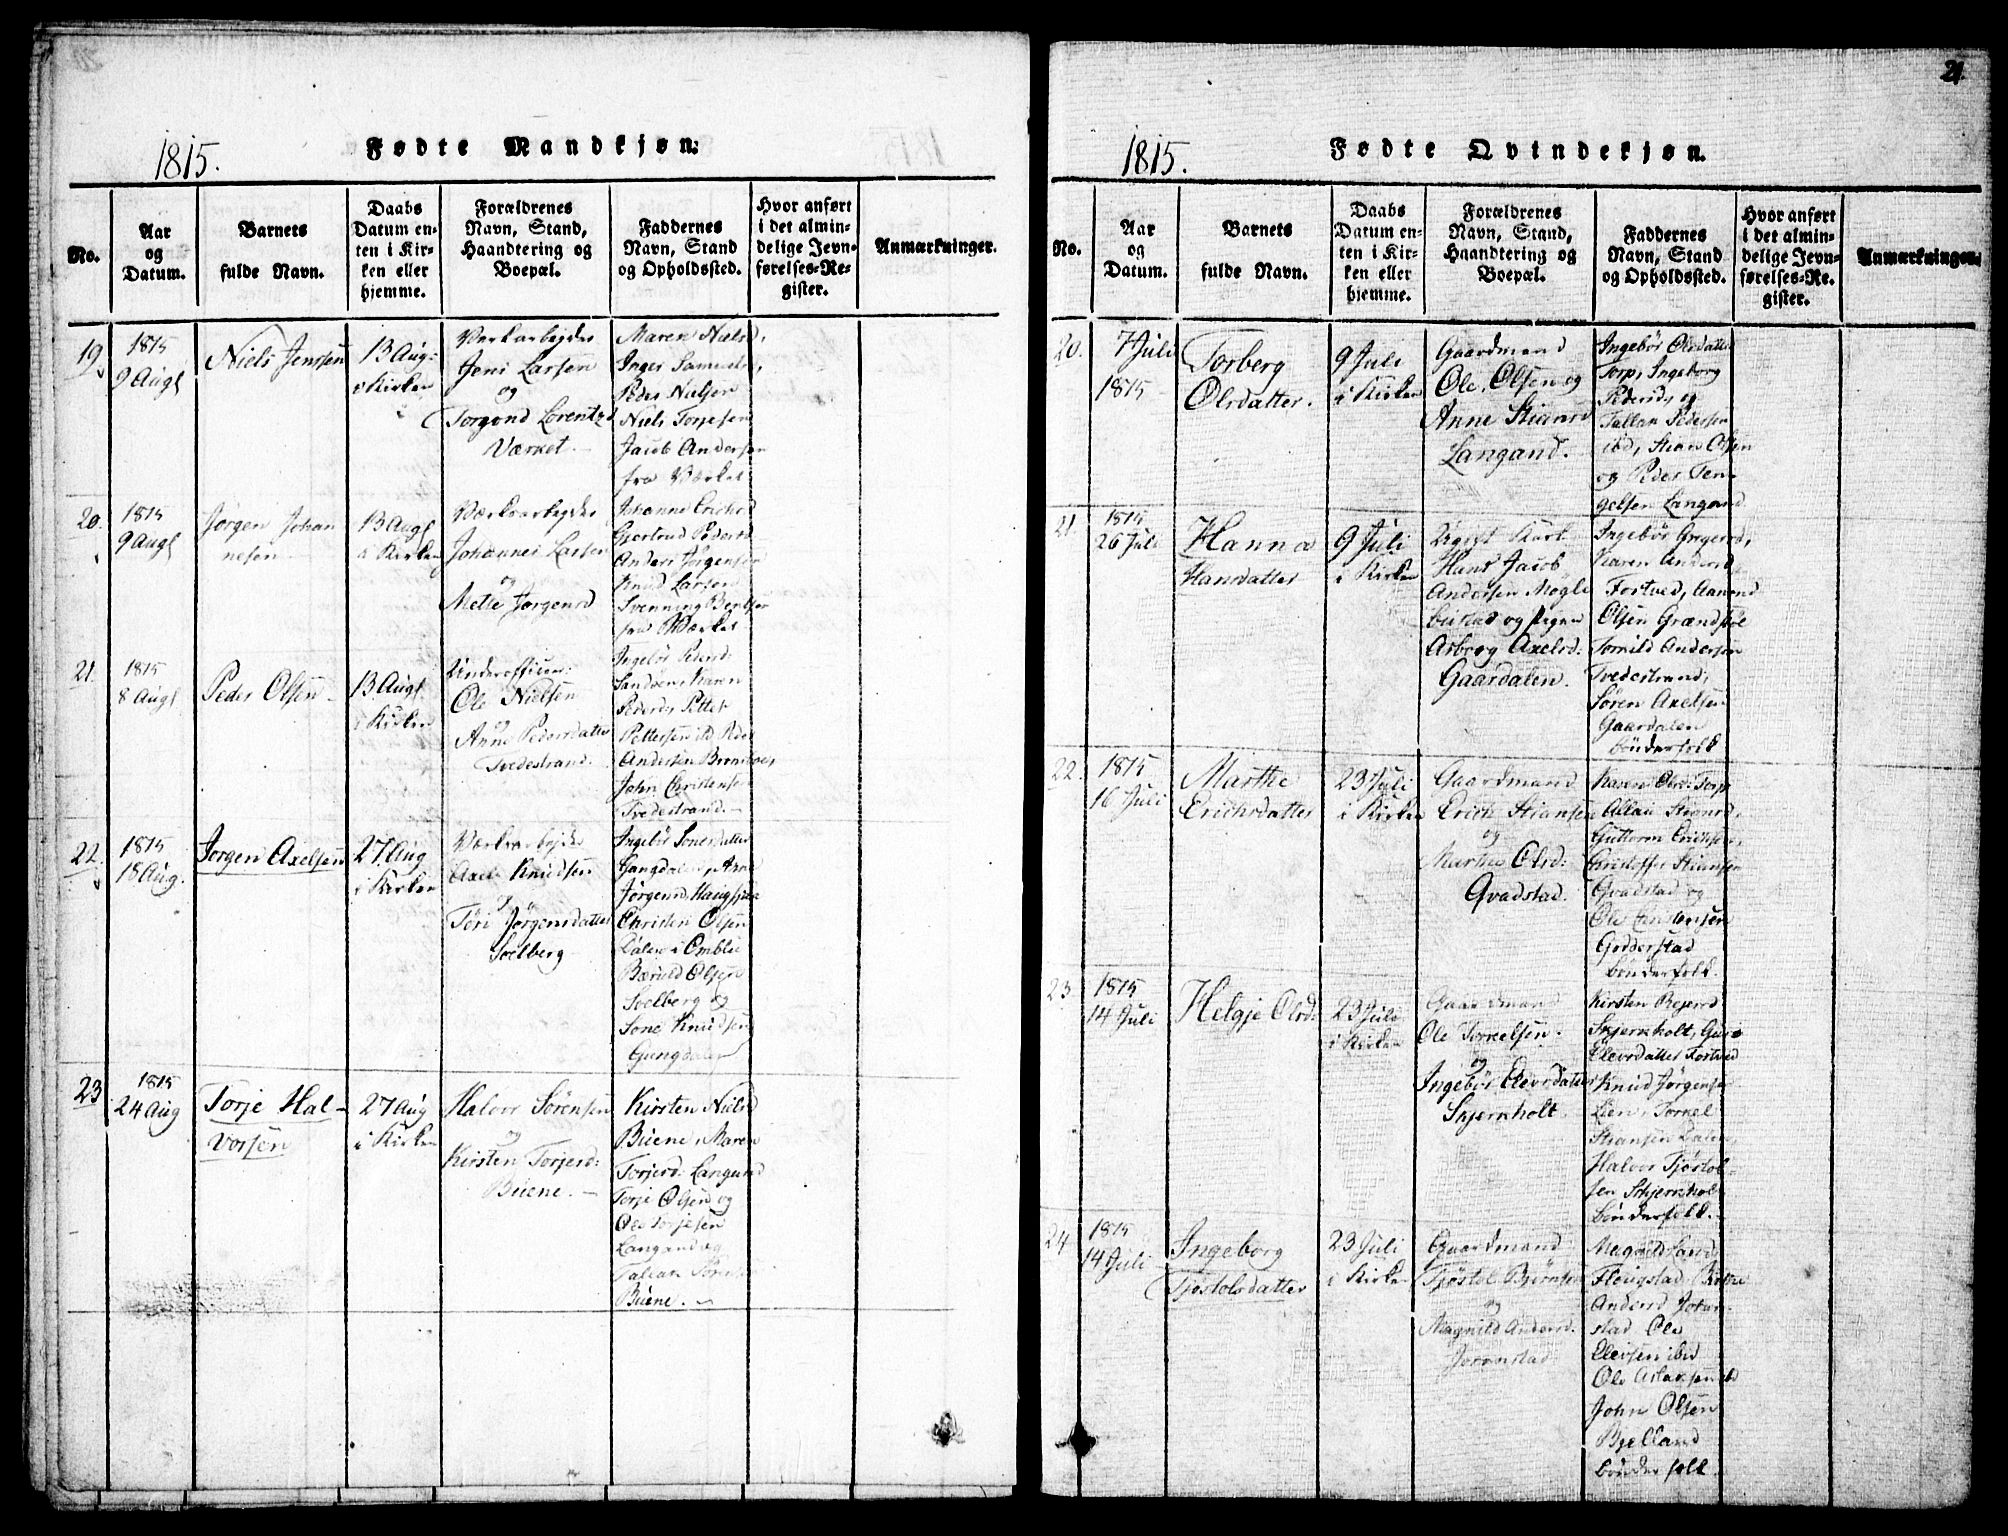 21
1815.
Fødte Mandkjøn.
No.
Aar
og
Datum.
Barnets
fulde Navn.
Daabs
Datum en-
ten i Kir-
ken eller
hjemme.
Forældrenes
Navn, Stand,
Haandtering og
Boepæl.
Faddernes
Navn, Stand
og Opholdssted.
Hvor anført
i det almin-
delige Jevn-
førelses-Re-
gister.
Anmærkninger.
19
1815
9 Augt
Niels Jenssen
13 Aug:
i Kirken
Verkarbejder
Jens Larsen
og
Torgond Lorentzd
Værket.
Maren Nielsd,
Inger
Peder Nielsen
Niels Torjesen
Jacob Andersen
fra Værket
20.
1815
9 Augt
Jørgen Johan
nesen
13 Augt
i Kirken
Værkarbejder
Johannes Larsen
og
Mette Jørgensd
Johanne Erichsd
Giertrud Pedersd
Anders Jørgensen
Knud Larsen
Svenning Bentsen
fra Værket
21.
1815
8 Augt
Peder Olsen
13 Augt
i Kirken
Underofficeer:
Ole Nielsen
og
Anne Pedersdatter
Tvedestrand.
Ingebør Pedersd:
Sandøen, Karen
Pedersd, Petter
Pettersen ibd Peder
Andersen
John Christensen
Tvedestrand.
22.
1815
18 Aug.
Jørgen Axelsen
27 Aug
i Kirken
Værkarbejder
Axel Knudsen
og
Tøri Jørgensdatter
Soelberg
Ingebør Sonesdatter
Gangdalen, Anne
Jørgensd,
Christen Olsen
Dalen i Omblie
Bæruld Olsen
Soelberg og
Sone Knudsen
Gangdalen
23
1815
24 Aug
Torje Hal-
vorsen
27 Aug
i Kirken
Halvor Sørensen
og
Kirsten Torjesd:
Buene.
Kirsten Nielsd
Buene, Maren
Torjesd: Langand
Torje Olsen og
Ole Torjesen
Langand og
Tallak Sørensen
Buene.
1815.
Fødte Qvindekjøn.
No.
Aar
og
Datum.
Barnets
fulde Navn.
Daabs
Datum en-
ten i Kir-
ken eller
hjemme.
Forældrenes
Navn, Stand,
Haandtering og
Boepæl.
Faddernes
Navn, Stand
og Opholdssted.
Hvor anført
i det almin-
delige Jevn-
førelses-Re-
gister.
Anmærkninger.
20.
7 Juli
1815
Torberg
Olsdatter.
9 Juli
i Kirken
Gaardmand
Ole Olsen og
Anne Stiansd
Langand.
Ingebør Olsdatter
Torp, Ingeborg
Pedersd, og
Tallak Pedersen
ibd, Stian Olsen
og Peder Ten-
gelsen Langand
21.
1815
26 Juli
Hanna
Hansdatter
9 Juli
i Kirken
Ugivt Karl
Hans Jacob
Andersen Møgle
bustad og Pigen
Asbrog Axelsd:
Gaardalen.
Ingebør
Karen Andersd,
Fostved, Aanond
Olsen Grændstøl
Andersen
Tvedestrand,
Søren Axelsen
Gaardalen
bønderfolk
22.
1815
16 Juli
Marthe
Erichsdatter
23 Juli
i Kirken
Gaardmand
Erich Stiansen
og
Marthe Olsd:
Qvadstad.
Karen Olsd: Torp
Stiansd,
Guttorm Erichsen,
Christoffer Stiansen
Qvadstad og
Ole
Godderstad
bønderfolk.
23
1815
14 Juli
Helgje Olsd:
23 Juli
i Kirken
Gaardmand
Ole Torkelsen
og
Ingebør Elevsdatter
Skjernholt.
Kirsten
Skjernholt, Guri
Elevsdatter Fostved
Knud Jørgensen
Lien, Torkel
Stiansen Dalen,
Halvor Tjøstol-
sen Skjernholt
bønderfolk.
24
1815
14 Juli
Ingeborg
Tjøstolsdatter
23 Juli
i Kirken
Gaardmand
Tjøstol Bjørnsen
og
Magnild Andersd.
Joranstad
Magnild
Flougstad
Andersd Joran-
stad Ole
Elevsen ibid
Ole Aslaksen ibd
John Olsen
Bjelland
bønderfolk.